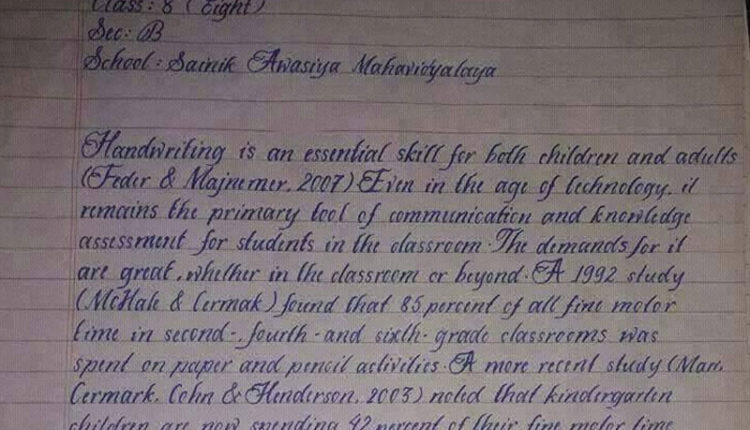 Class: 8 (Eight)
Sec: B
School: Sainik Awasiya Mahavidyalaya
Handwriting is an essential skill for both children and adults
(Feder & Majnemer, 2007) Even in the age of technology, it
remains the primary tool of communication and knowledge
assessment for students in the classroom. The demands for it
are great, whether in the classroom or beyond. A 1992 study
(McHale & Cermak) found that 85 percent of all fine motor
time in second-, fourth-and sixth-grade classrooms was
spent on paper and pencil activities. A more recent study (Marr,
Cermark, Cohn & Henderson, 2003) noted that kindergarten
children are now spending 42 percent of their fine motor time